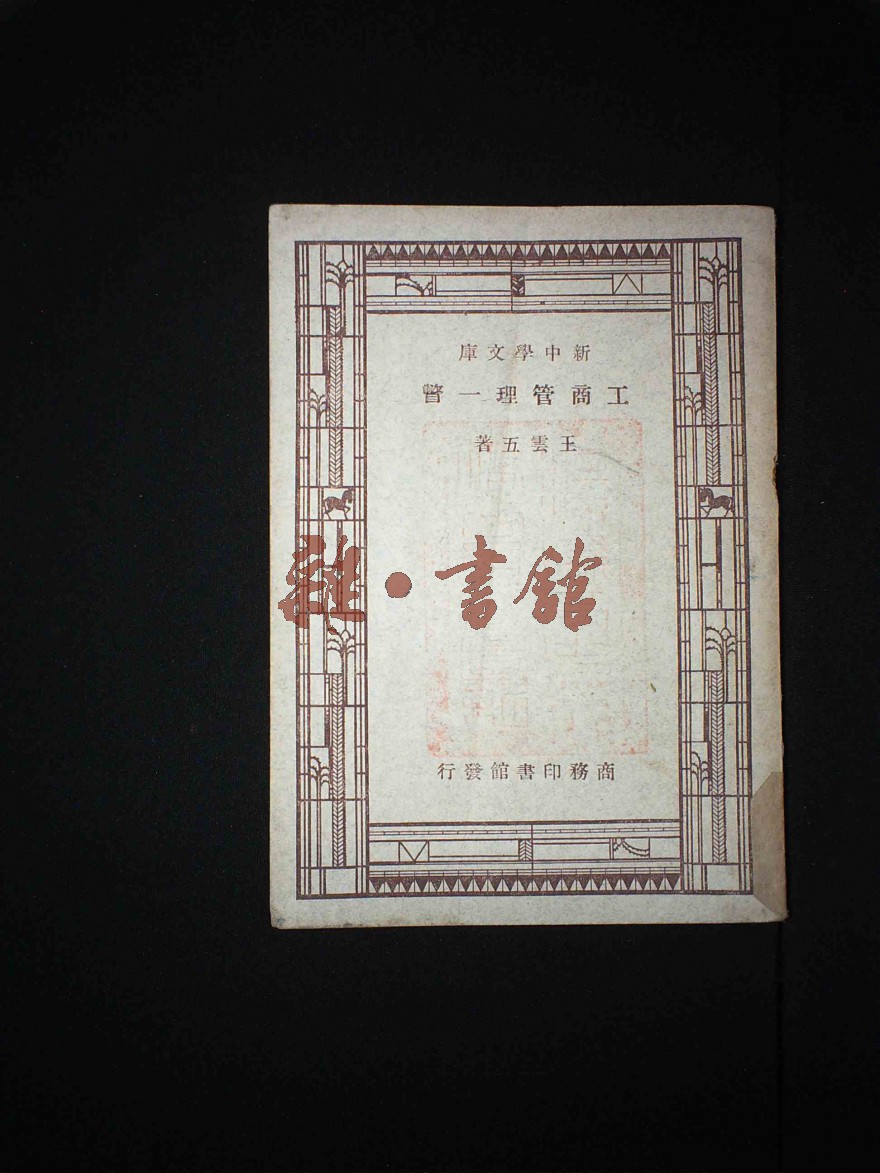 新中學文庫
工商管理一瞥
王雲五著
雜·書館
商務印書館發行